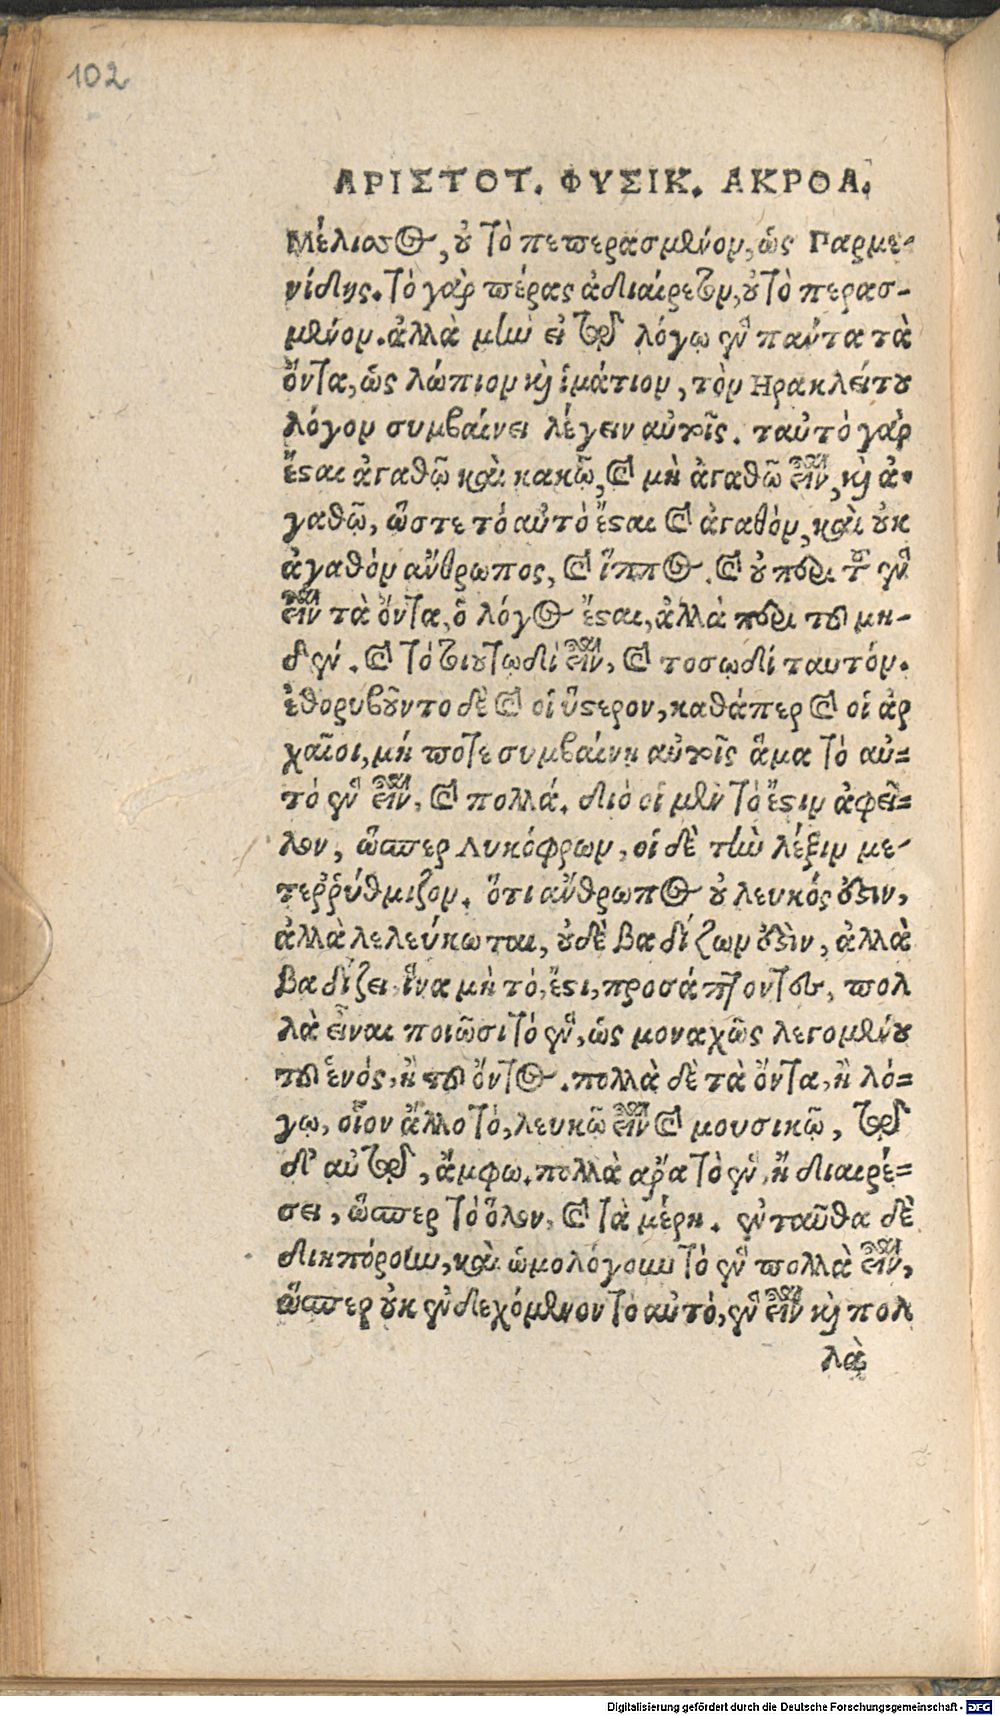 102
ΑΡΙΣΤΟΤ. ΦΥΣΙΚ. ΑΚΡΟΑ.
Μέλισσος, οὐ τὸ πεπερασμένον, ὡς Παρμε-
νίδης. τὸ γὰρ πέρας ἀδιαίρετον, οὐ τὸ περασ-
μένον. ἀλλὰ μὴν εἰ τῷ λόγῳ ἓν πάντα τὰ
ὄντα, ὡς λώπιον καὶ ἱμάτιον, τὸν Ηρακλείτου
λόγον συμβαίνει λέγειν αὐτοῖς. ταὐτὸ γὰρ
ἔσται ἀγαθῷ καὶ κακῷ, καὶ μὴ ἀγαθῷ εἶναι, καὶ ἀ-
γαθῷ, ὥστε τὸ αὐτὸ ἔσται καὶ ἀγαθὸν, καὶ οὐκ
ἀγαθὸν ἄνθρωπος, καὶ ἵππος. καὶ οὐ περὶ τοῦ ἓν
εἶναι τὰ ὄντα, ὁ λόγος ἔσται, ἀλλὰ περὶ τοῦ μη-
δέν. καὶ τὸ τοιουτῳδὶ εἶναι, καὶ τοσῳδὶ ταυτόν.
ἐθορυβοῦντο δὲ καὶ οἱ ὕστερον, καθάπερ καὶ οἱ ἀρ
χαῖοι, μή ποτε συμβαίνῃ αὐτοῖς ἅμα τὸ αὐ-
τὸ ἓν εἶναι, καὶ πολλά. διὸ οἱ μὲν τὸ ἔστιν ἀφεῖ-
λον, ὥσπερ Λυκόφρων, οἱ δὲ τὴν λέξιν με-
τερῤύθμιζον. ὅτι ἄνθρωπος οὐ λευκός ἐστιν,
ἀλλὰ λελεύκωται, οὐδὲ βαδίζων ἐστὶν, ἀλλὰ
βαδίζει, ἵνα μὴ τὸ, ἔστι, προσάπτοντες, πολ
λὰ εἶναι ποιῶσι τὸ ἓν, ὡς μοναχῶς λεγομένου
τοῦ ἑνός, ἢ τοῦ ὄντος. πολλὰ δὲ τὰ ὄντα, ἢ λό-
γῳ, οἷον ἄλλο τὸ, λευκῷ εἶναι καὶ μουσικῷ, τῷ
δ' αὐτῷ, ἄμφω. πολλὰ ἄρα τὸ ἓν, ἢ διαιρέ-
σει, ὥσπερ τὸ ὅλον, καὶ τὰ μέρη. ἐνταῦθα δὲ
διηπόρουν, καὶ ὡμολόγουν τὸ ἓν πολλὰ εἶναι,
ὥσπερ οὐκ ἐνδεχόμενον τὸ αὐτὸ, ἓν εἶναι καὶ πολ
λὰ
Digitalisierung gefördert durch die Deutsche Forschungsgemeinschaft - DFG